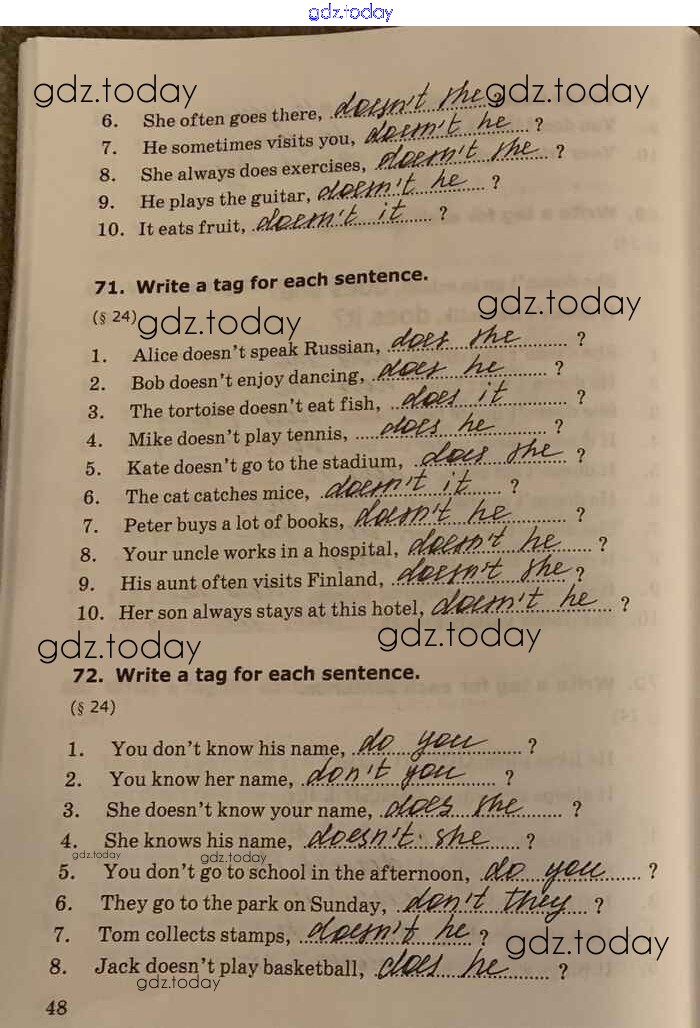 gdz.today
gdz.today gdz.today
6. She often goes there, doesn't she ?
7. He sometimes visits you, doesn't he ?
8. She always does exercises, doesn't she ?
9. He plays the guitar, doesn't he ?
10. It eats fruit, doesn't it ?
71. Write a tag for each sentence.
(§ 24) gdz.today gdz.today
1. Alice doesn't speak Russian, does she ?
2. Bob doesn't enjoy dancing, does he ?
3. The tortoise doesn't eat fish, does it ?
4. Mike doesn't play tennis, does he ?
5. Kate doesn't go to the stadium, does she ?
6. The cat catches mice, doesn't it ?
7. Peter buys a lot of books, doesn't he ?
8. Your uncle works in a hospital, doesn't he ?
9. His aunt often visits Finland, doesn't she ?
10. Her son always stays at this hotel, doesn't he ?
gdz.today gdz.today
72. Write a tag for each sentence.
(§ 24)
1. You don't know his name, do you ?
2. You know her name, don't you ?
3. She doesn't know your name, does she ?
4. She knows his name, doesn't she ?
gdz.today gdz.today
5. You don't go to school in the afternoon, do you ?
6. They go to the park on Sunday, don't they ?
7. Tom collects stamps, doesn't he ?
gdz.today
8. Jack doesn't play basketball, does he ?
gdz.today
48